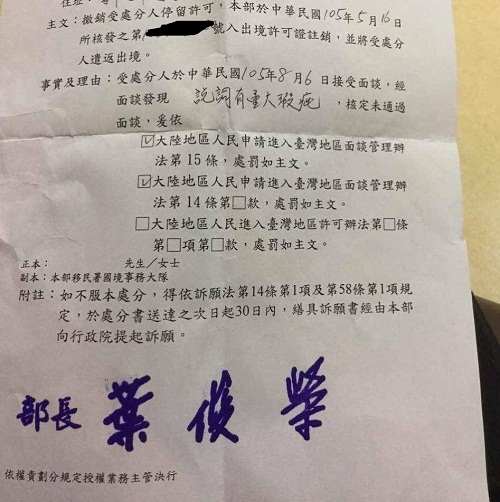 主文：撤銷受處分人停留許可，本部於中華民國105年5月16日
所核發之第 號入出境許可證註銷，並將受處分
人遣返出境。
事實及理由：受處分人於中華民國105年8月6日接受面談，經
面談發現 說詞有重大瑕疵 ，核定未通過
面談，爰依
☑大陸地區人民申請進入臺灣地區面談管理辦
法第15條，處罰如主文。
☑大陸地區人民申請進入臺灣地區面談管理辦
法第14條第□款，處罰如主文。
□大陸地區人民進入臺灣地區許可辦法第□條
第□項第□款，處罰如主文。
正本： 先生／女士
副本：本部移民署國境事務大隊
附註：如不服本處分，得依訴願法第14條第1項及第58條第1項規
定，於處分書送達之次日起30日內，繕具訴願書經由本部
向行政院提起訴願。
部長 葉俊榮
依權責劃分規定授權業務主管決行